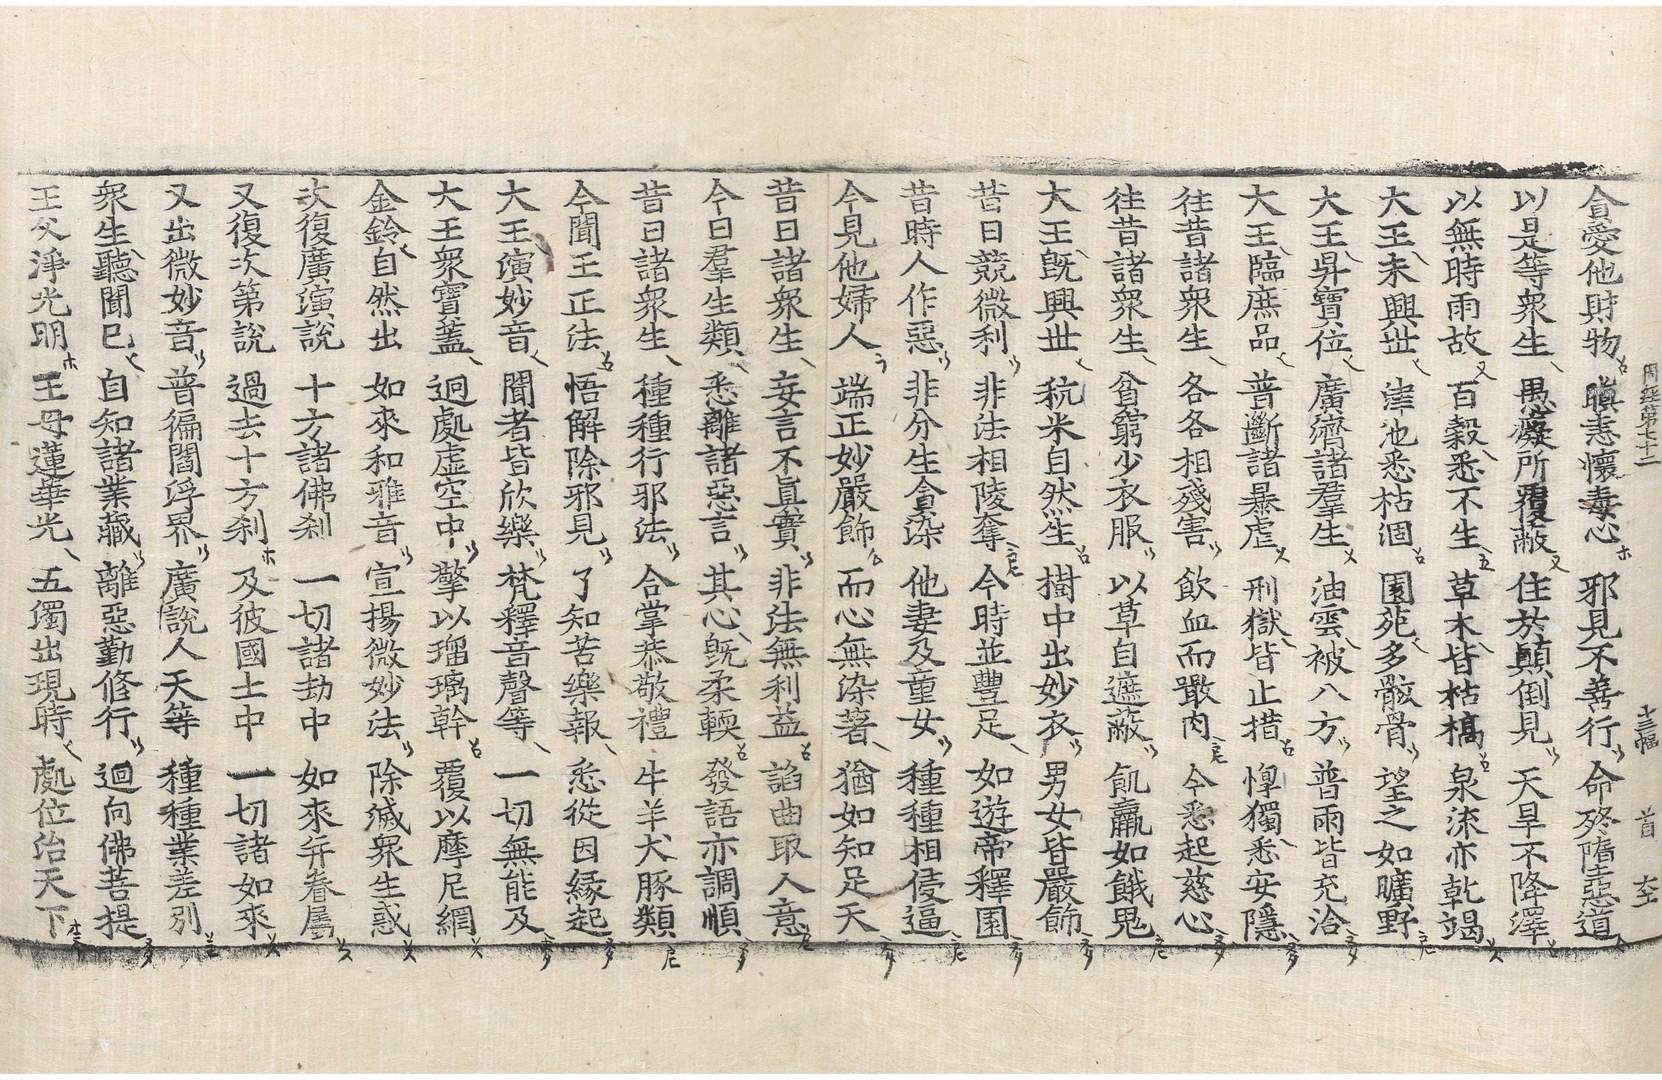 貪愛他財物 瞋恚懷毒心 邪見不善行 命終墮惡道
周經第七十二 十三幅 首 大
以是等衆生 愚癡所覆蔽 住於顚倒見 天旱不降澤
以無時雨故 百穀悉不生 草木皆枯槁 泉流亦乾竭
大王未興世 津池悉枯涸 園苑多骸骨 望之如曠野
大王昇寶位 廣濟諸羣生 油雲被八方 普雨皆充洽
大王臨庶品 普斷諸暴虐 刑獄皆止措 惸獨悉安隱
往昔諸衆生 各各相殘害 飮血而噉肉 今悉起慈心
往昔諸衆生 貧窮少衣服 以草自遮蔽 飢羸如餓鬼
大王旣興世 秔米自然生 樹中出妙衣 男女皆嚴飾
昔日競微利 非法相陵奪 今時並豐足 如遊帝釋園
昔時人作惡 非分生貪染 他妻及童女 種種相侵逼
今見他婦人 端正妙嚴飾 而心無染著 猶如知足天
昔日諸衆生 妄言不眞實 非法無利益 諂曲取人意
今日羣生類 悉離諸惡言 其心旣柔輭 發語亦調順
昔日諸衆生 種種行邪法 合掌恭敬禮 牛羊犬豚類
今聞王正法 悟解除邪見 了知苦樂報 悉從因緣起
大王演妙音 聞者皆欣樂 梵釋音聲等 一切無能及
大王衆寶蓋 迥處虛空中 擎以瑠璃幹 覆以摩尼網
金鈴自然出 如來和雅音 宣揚微妙法 除滅衆生惑
次復廣演說 十方諸佛刹 一切諸劫中 如來幷眷屬
又復次第說 過去十方刹 及彼國土中 一切諸如來
又出微妙音 普徧閻浮界 廣說人天等 種種業差別
衆生聽聞已 自知諸業藏 離惡勤修行 迴向佛菩提
王父淨光明 王母蓮華光 五濁出現時 處位治天下